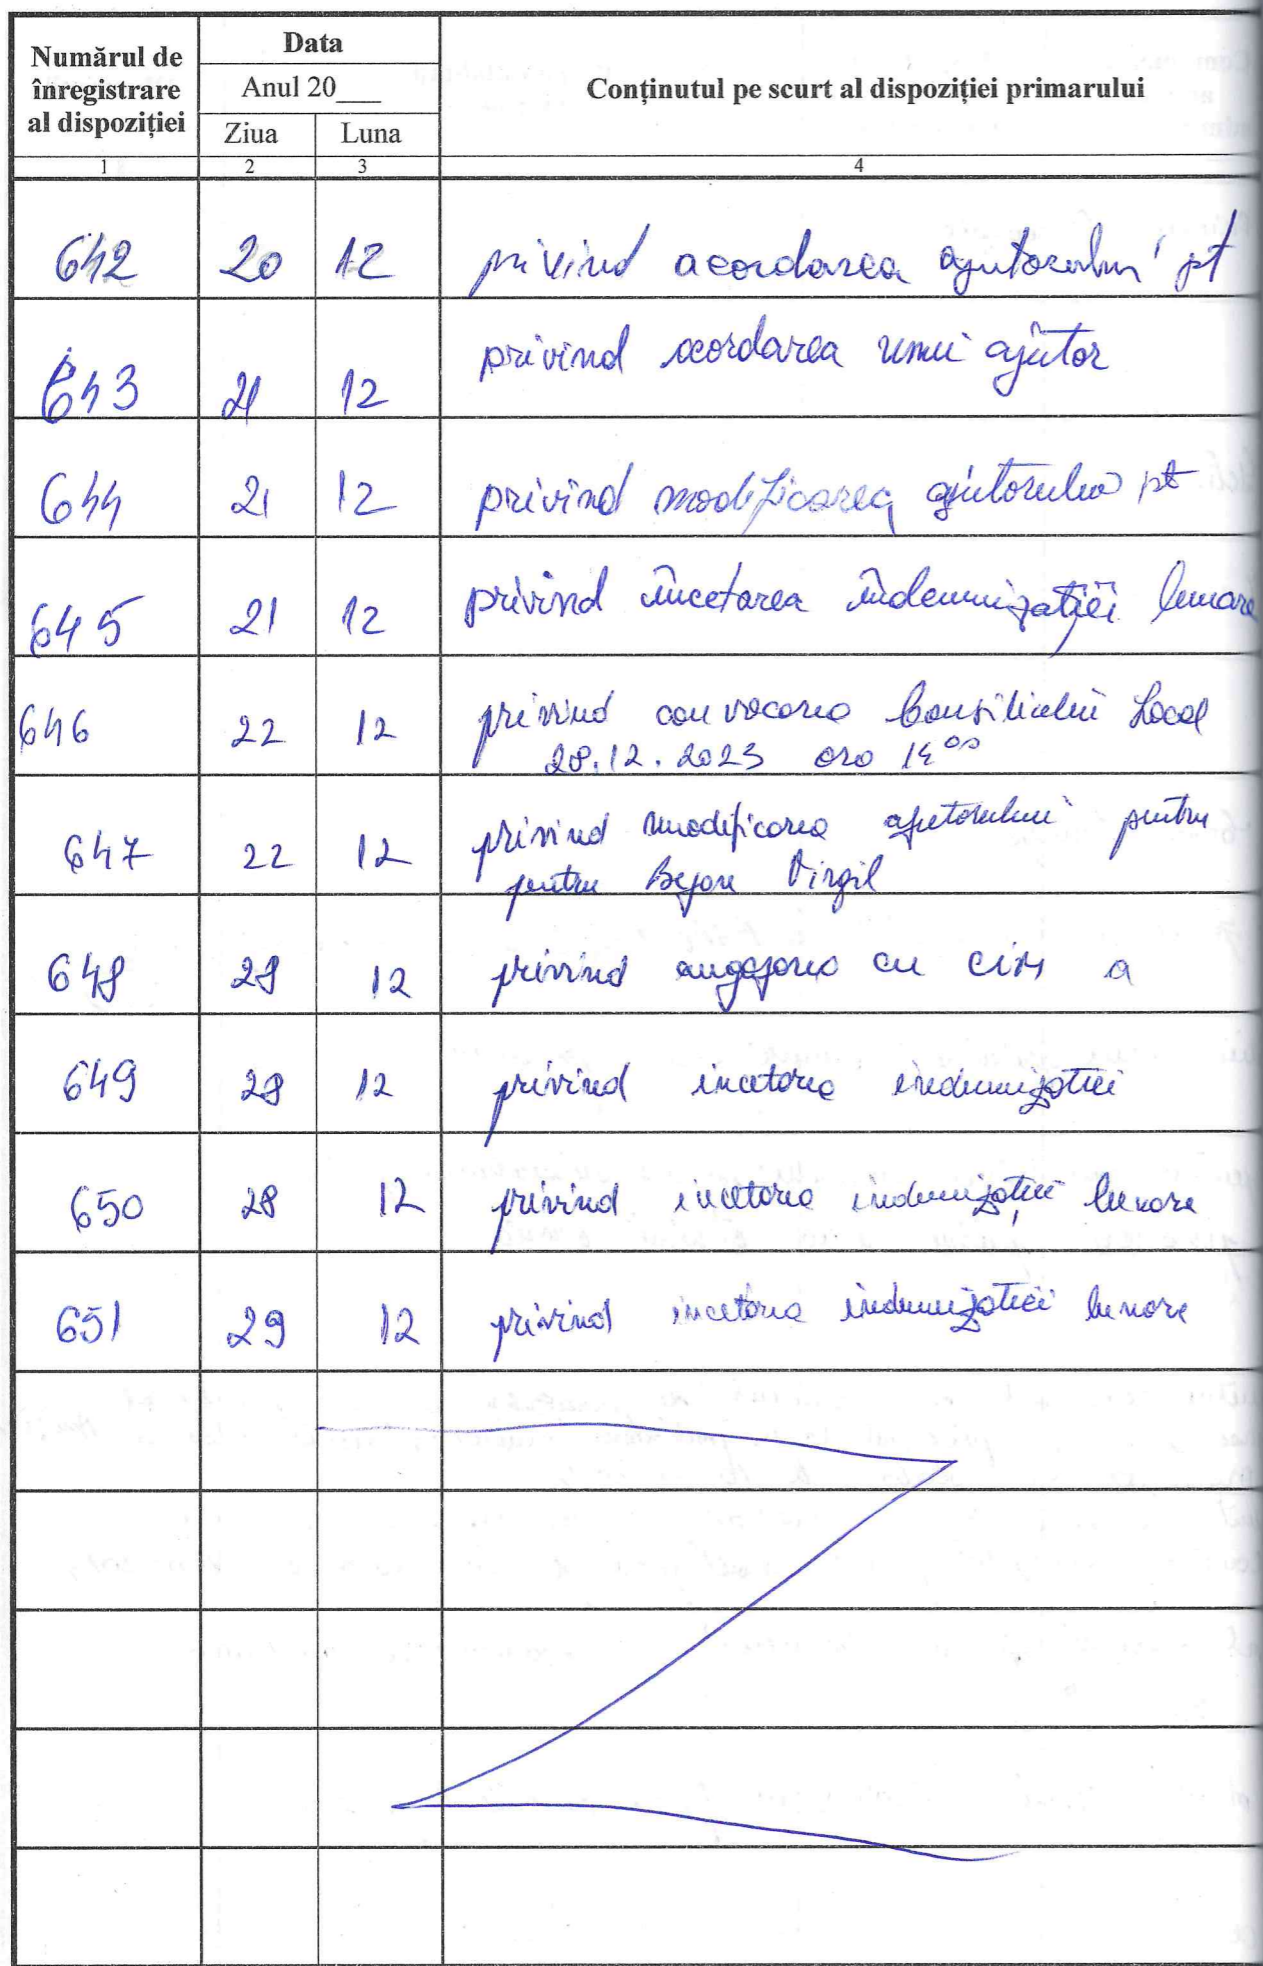 Numărul de
înregistrare
al dispoziției
Data
Anul 20___
Ziua Luna
Conținutul pe scurt al dispoziției primarului
1 2 3 4
642 20 12 privind acordarea ajutorului pt
643 21 12 privind acordarea unui ajutor
644 21 12 privind modificarea ajutorului pt
645 21 12 privind încetarea îndemnizației lunare
646 22 12 privind convocarea Consiliului Local
28.12.2023 ora 14⁰⁰
647 22 12 privind modificarea ajutorului pentru
pentru Virgil
648 28 12 privind angajarea cu CIM a
649 28 12 privind incetarea indemnizatiei
650 28 12 privind incetarea indemnizației lunare
651 29 12 privind incetarea indemnizatiei lunare